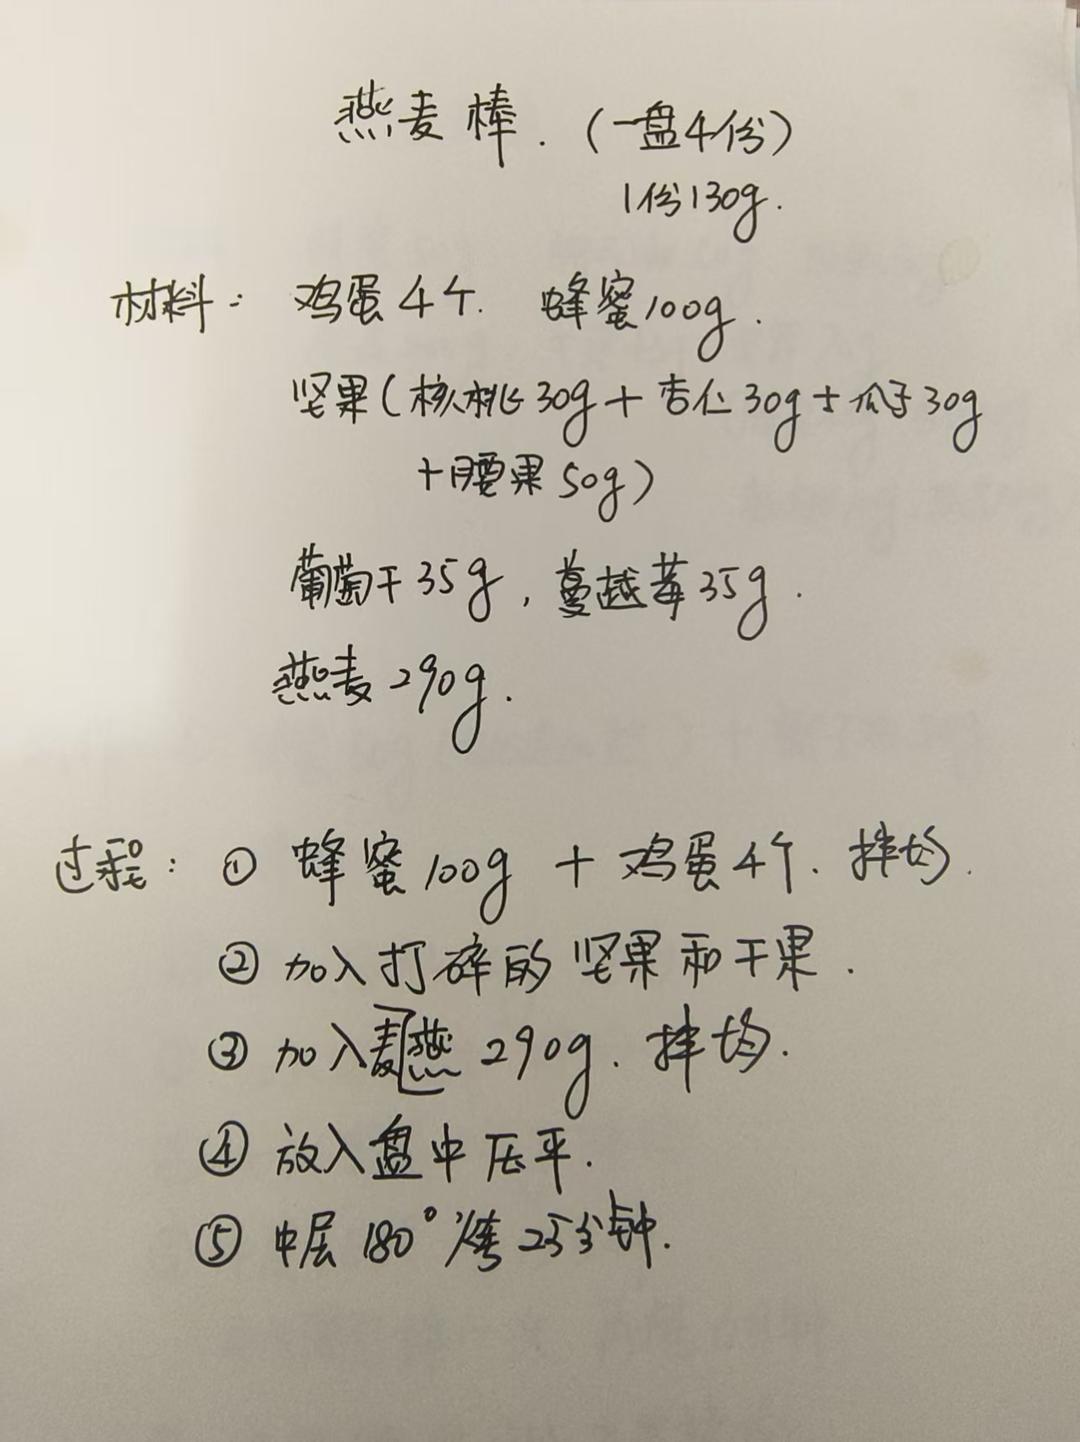 燕麦棒.（一盘4份）
1份130g.
材料: 鸡蛋4个. 蜂蜜100g.
坚果(核桃30g+杏仁30g+瓜子30g
+腰果50g)
葡萄干35g, 蔓越莓35g.
燕麦290g.
过程: ① 蜂蜜100g + 鸡蛋4个. 拌均.
② 加入打碎的坚果和干果.
③ 加入麦燕290g. 拌均.
④ 放入盘中压平.
⑤ 中层180°烤25分钟.